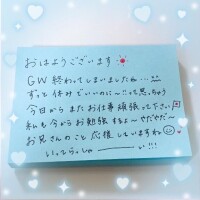 おはようございます
GW 終わってしまいましたね…
ずっと休みでいいのに〜!!って思っちゃう
今日から またお仕事 頑張って下さい
私も 今から お勉強 するよ〜 やだやだ〜
お兄さんのこと 応援していますね
いってらっしゃーーーい!!!